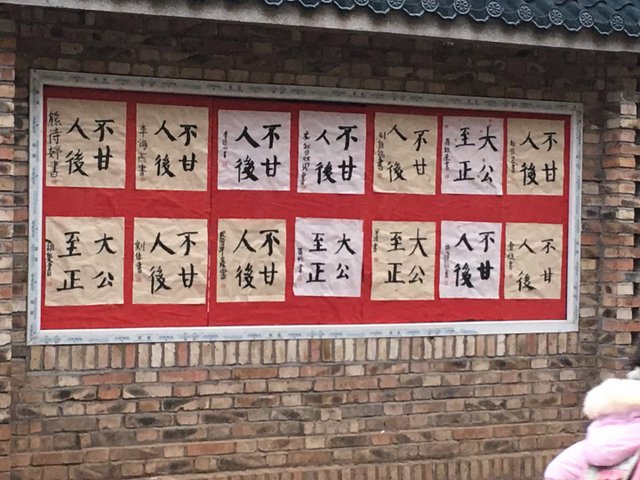 不甘
人後
不甘
人後
李海燕書
不甘
人後
不甘
人後
不甘
人後
大公
至正
不甘
人後
大公
至正
不甘
人後
刘佳書
不甘
人後
大公
至正
大公
至正
不甘
人後
不甘
人後